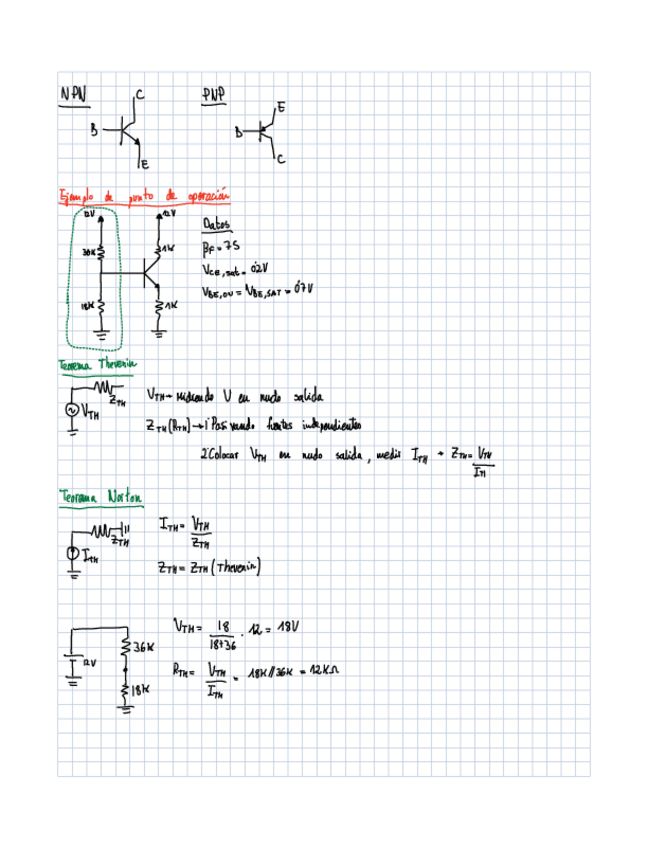 NPN
PNP
C
B
E
E
B
C
Ejemplo de punto de operación
12V
12V
36K
1K
18K
1K
Datos
βF = 75
VCE,sat = 0'2V
VBE,ON = VBE,SAT = 0'7V
Teorema Thevenin
ZTH
VTH
VTH → Midiendo V en nudo salida
ZTH (RTH) → 1º Pasivando fuentes independientes
2º Colocar VTH en nudo salida, medir ITH → ZTH = VTH
Teorema Norton
ZTH
ITH
ITH = VTH
ZTH
ZTH = ZTH (Thevenin)
VTH = 18 · 12 = 18V
18+36
12V
36K
18K
RTH = VTH = 18K//36K = 12KΩ
ITH